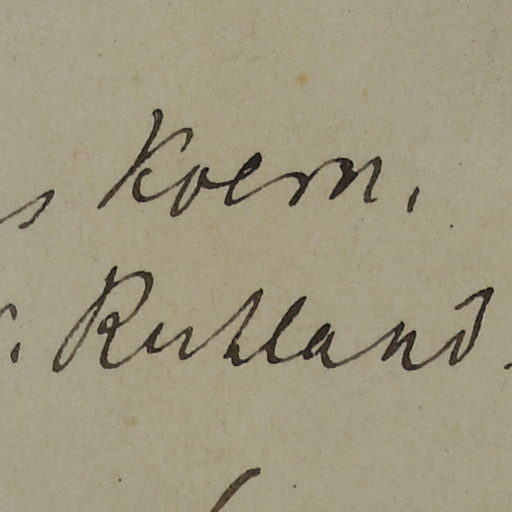 s Koern.
r. Ruhland.